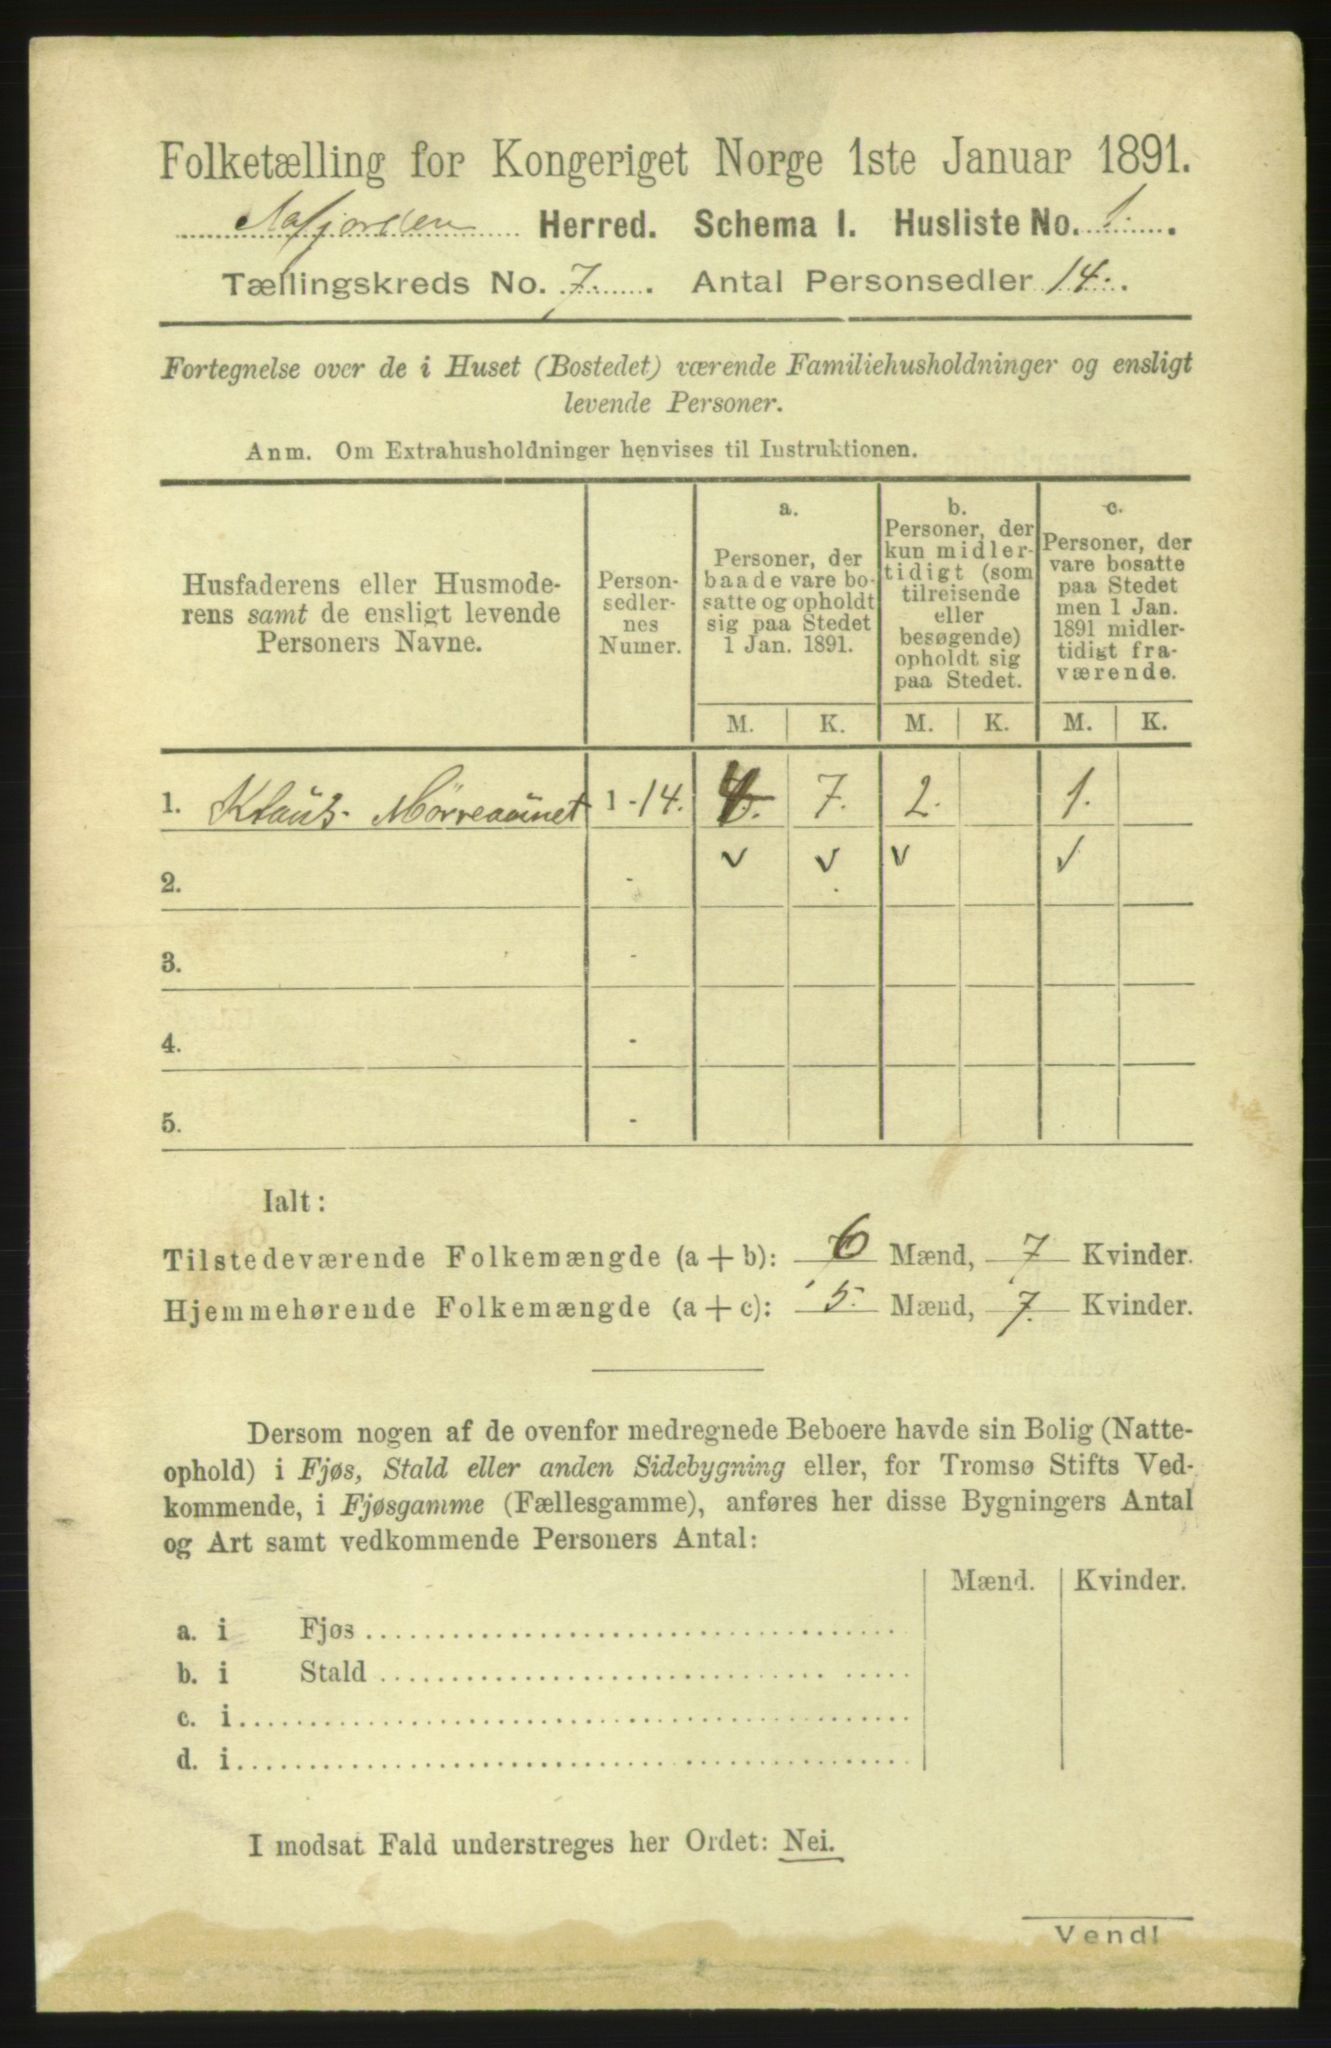 Folketælling for Kongeriget Norge 1ste Januar 1891.
Aafjorden Herred. Schema I. Husliste No. 1.
Tællingskreds No. 7. Antal Personsedler 14.
Fortegnelse over de i Huset (Bostedet) værende Familiehusholdninger og ensligt
levende Personer.
Anm. Om Extrahusholdninger henvises til Instruktionen.
Husfaderens eller Husmode-
rens samt de ensligt levende
Personers Navne.
Person-
sedler-
nes
Numer.
a.
Personer, der
baade vare bo-
satte og opholdt
sig paa Stedet
1 Jan. 1891.
b.
Personer, der
kun midler-
tidigt (som
tilreisende
eller
besøgende)
opholdt sig
paa Stedet.
c.
Personer, der
vare bosatte
paa Stedet
men 1 Jan.
1891 midler-
tidigt fra-
værende.
M. K. M. K. M. K.
1. Klaus Mørreaunet 1 - 14. 4. 7. 2. 1.
✓ ✓ ✓ ✓
2. -
3. -
4. -
5. -
Ialt:
Tilstedeværende Folkemængde (a + b): 6 Mænd, 7 Kvinder.
Hjemmehørende Folkemængde (a + c): 5. Mænd, 7. Kvinder.
Dersom nogen af de ovenfor medregnede Beboere havde sin Bolig (Natte-
ophold) i Fjøs, Stald eller anden Sidebygning eller, for Tromsø Stifts Ved-
kommende, i Fjøsgamme (Fællesgamme), anføres her disse Bygningers Antal
og Art samt vedkommende Personers Antal:
Mænd. Kvinder.
a. i Fjøs
b. i Stald
c. i
d. i
I modsat Fald understreges her Ordet: Nei.
Vend!